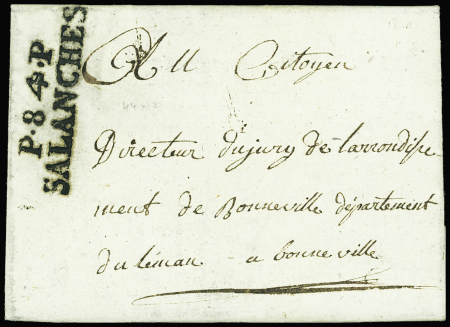 P.84.P
SALANCHES
Au Citoyen
Directeur dujury de larrondisse
ment de Bonneville département
du léman a bonneville